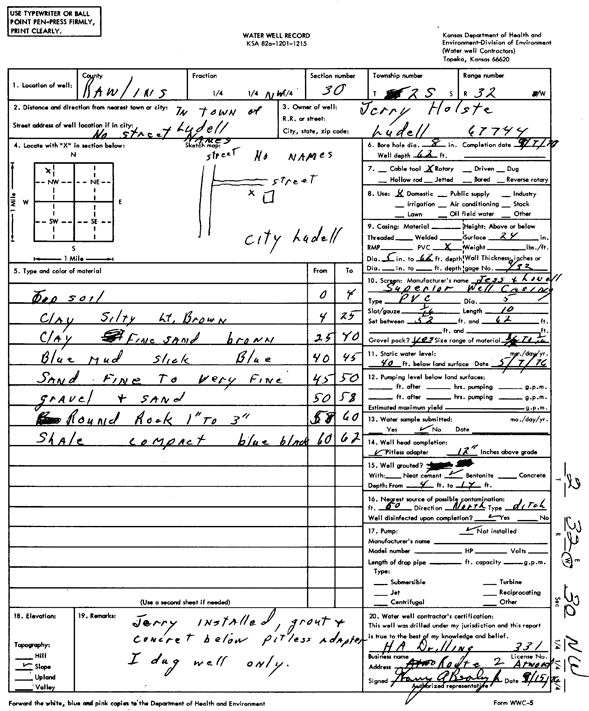 USE TYPEWRITER OR BALL
POINT PEN-PRESS FIRMLY,
PRINT CLEARLY.
WATER WELL RECORD
KSA 82a-1201-1215
Kansas Department of Health and
Environment-Division of Environment
(Water well Contractors)
Topeka, Kansas 66620
1. Location of well: County RAWLINS Fraction 1/4 1/4 NW 1/4 Section number 30 Township number T 2 S S Range number R 32 E/W
2. Distance and direction from nearest town or city: In town of Ludell
Street address of well location if in city: No street NAMES
3. Owner of well: Jerry Holste
R.R. or street:
City, state, zip code: Ludell 67744
4. Locate with "X" in section below: Sketch map:
N
X
NW NE
W E
SW SE
S
1 Mile
1 Mile
street No NAMES
street
X
City Ludell
6. Bore hole dia. 8 in. Completion date
Well depth 62 ft.
7. Cable tool X Rotary Driven Dug
Hollow rod Jetted Bored Reverse rotary
8. Use: X Domestic Public supply Industry
Irrigation Air conditioning Stock
Lawn Oil field water Other
9. Casing: Material Height: Above or below
Threaded Welded Surface 24 in.
RMP PVC X Weight lbs./ft.
Dia. 5 in. to 62 ft. depth Wall Thickness: inches or
Dia. in. to ft. depth gage No. 9/32
10. Screen: Manufacturer's name Jess & Lowell
Superior Well Casing
Type PVC Dia. 5
Slot/gauze 1/16 Length 10
Set between 52 ft. and 62 ft.
ft. and ft.
Gravel pack? yes Size range of material
11. Static water level: mo./day/yr.
40 ft. below land surface Date
12. Pumping level below land surfaces:
ft. after hrs. pumping g.p.m.
ft. after hrs. pumping g.p.m.
Estimated maximum yield g.p.m.
13. Water sample submitted: mo./day/yr.
Yes ✓ No Date
14. Well head completion:
✓ Pitless adapter 12" Inches above grade
15. Well grouted?
With: Neat cement ✓ Bentonite Concrete
Depth: From 4 ft. to 14 ft.
16. Nearest source of possible contamination:
ft. 60 Direction North Type ditch
Well disinfected upon completion? ✓ Yes No
17. Pump: ✓ Not installed
Manufacturer's name
Model number HP Volts
Length of drop pipe ft. capacity g.p.m.
Type:
Submersible Turbine
Jet Reciprocating
Centrifugal Other
5. Type and color of material From To
Top soil 0 4
Clay Silty Lt. Brown 4 25
Clay FINE SAND brown 25 40
Blue Mud slick Blue 40 45
SAND FINE To Very Fine 45 50
gravel + sand 50 58
Round Rock 1" To 3" 58 60
Shale compact blue black 60 62
(Use a second sheet if needed)
18. Elevation:
Topography:
Hill
✓ Slope
Upland
Valley
19. Remarks: Jerry installed, grout +
concret below pitless adapter
I dug well only.
20. Water well contractor's certification:
This well was drilled under my jurisdiction and this report
is true to the best of my knowledge and belief.
HA Drilling 331
Business name License No.
Address Route 2 Atwood
Signed Date
Authorized representative
T 2
R 32 E W
Sec 30
1/4 1/4 NW 1/4
Forward the white, blue and pink copies to the Department of Health and Environment
Form WWC-5